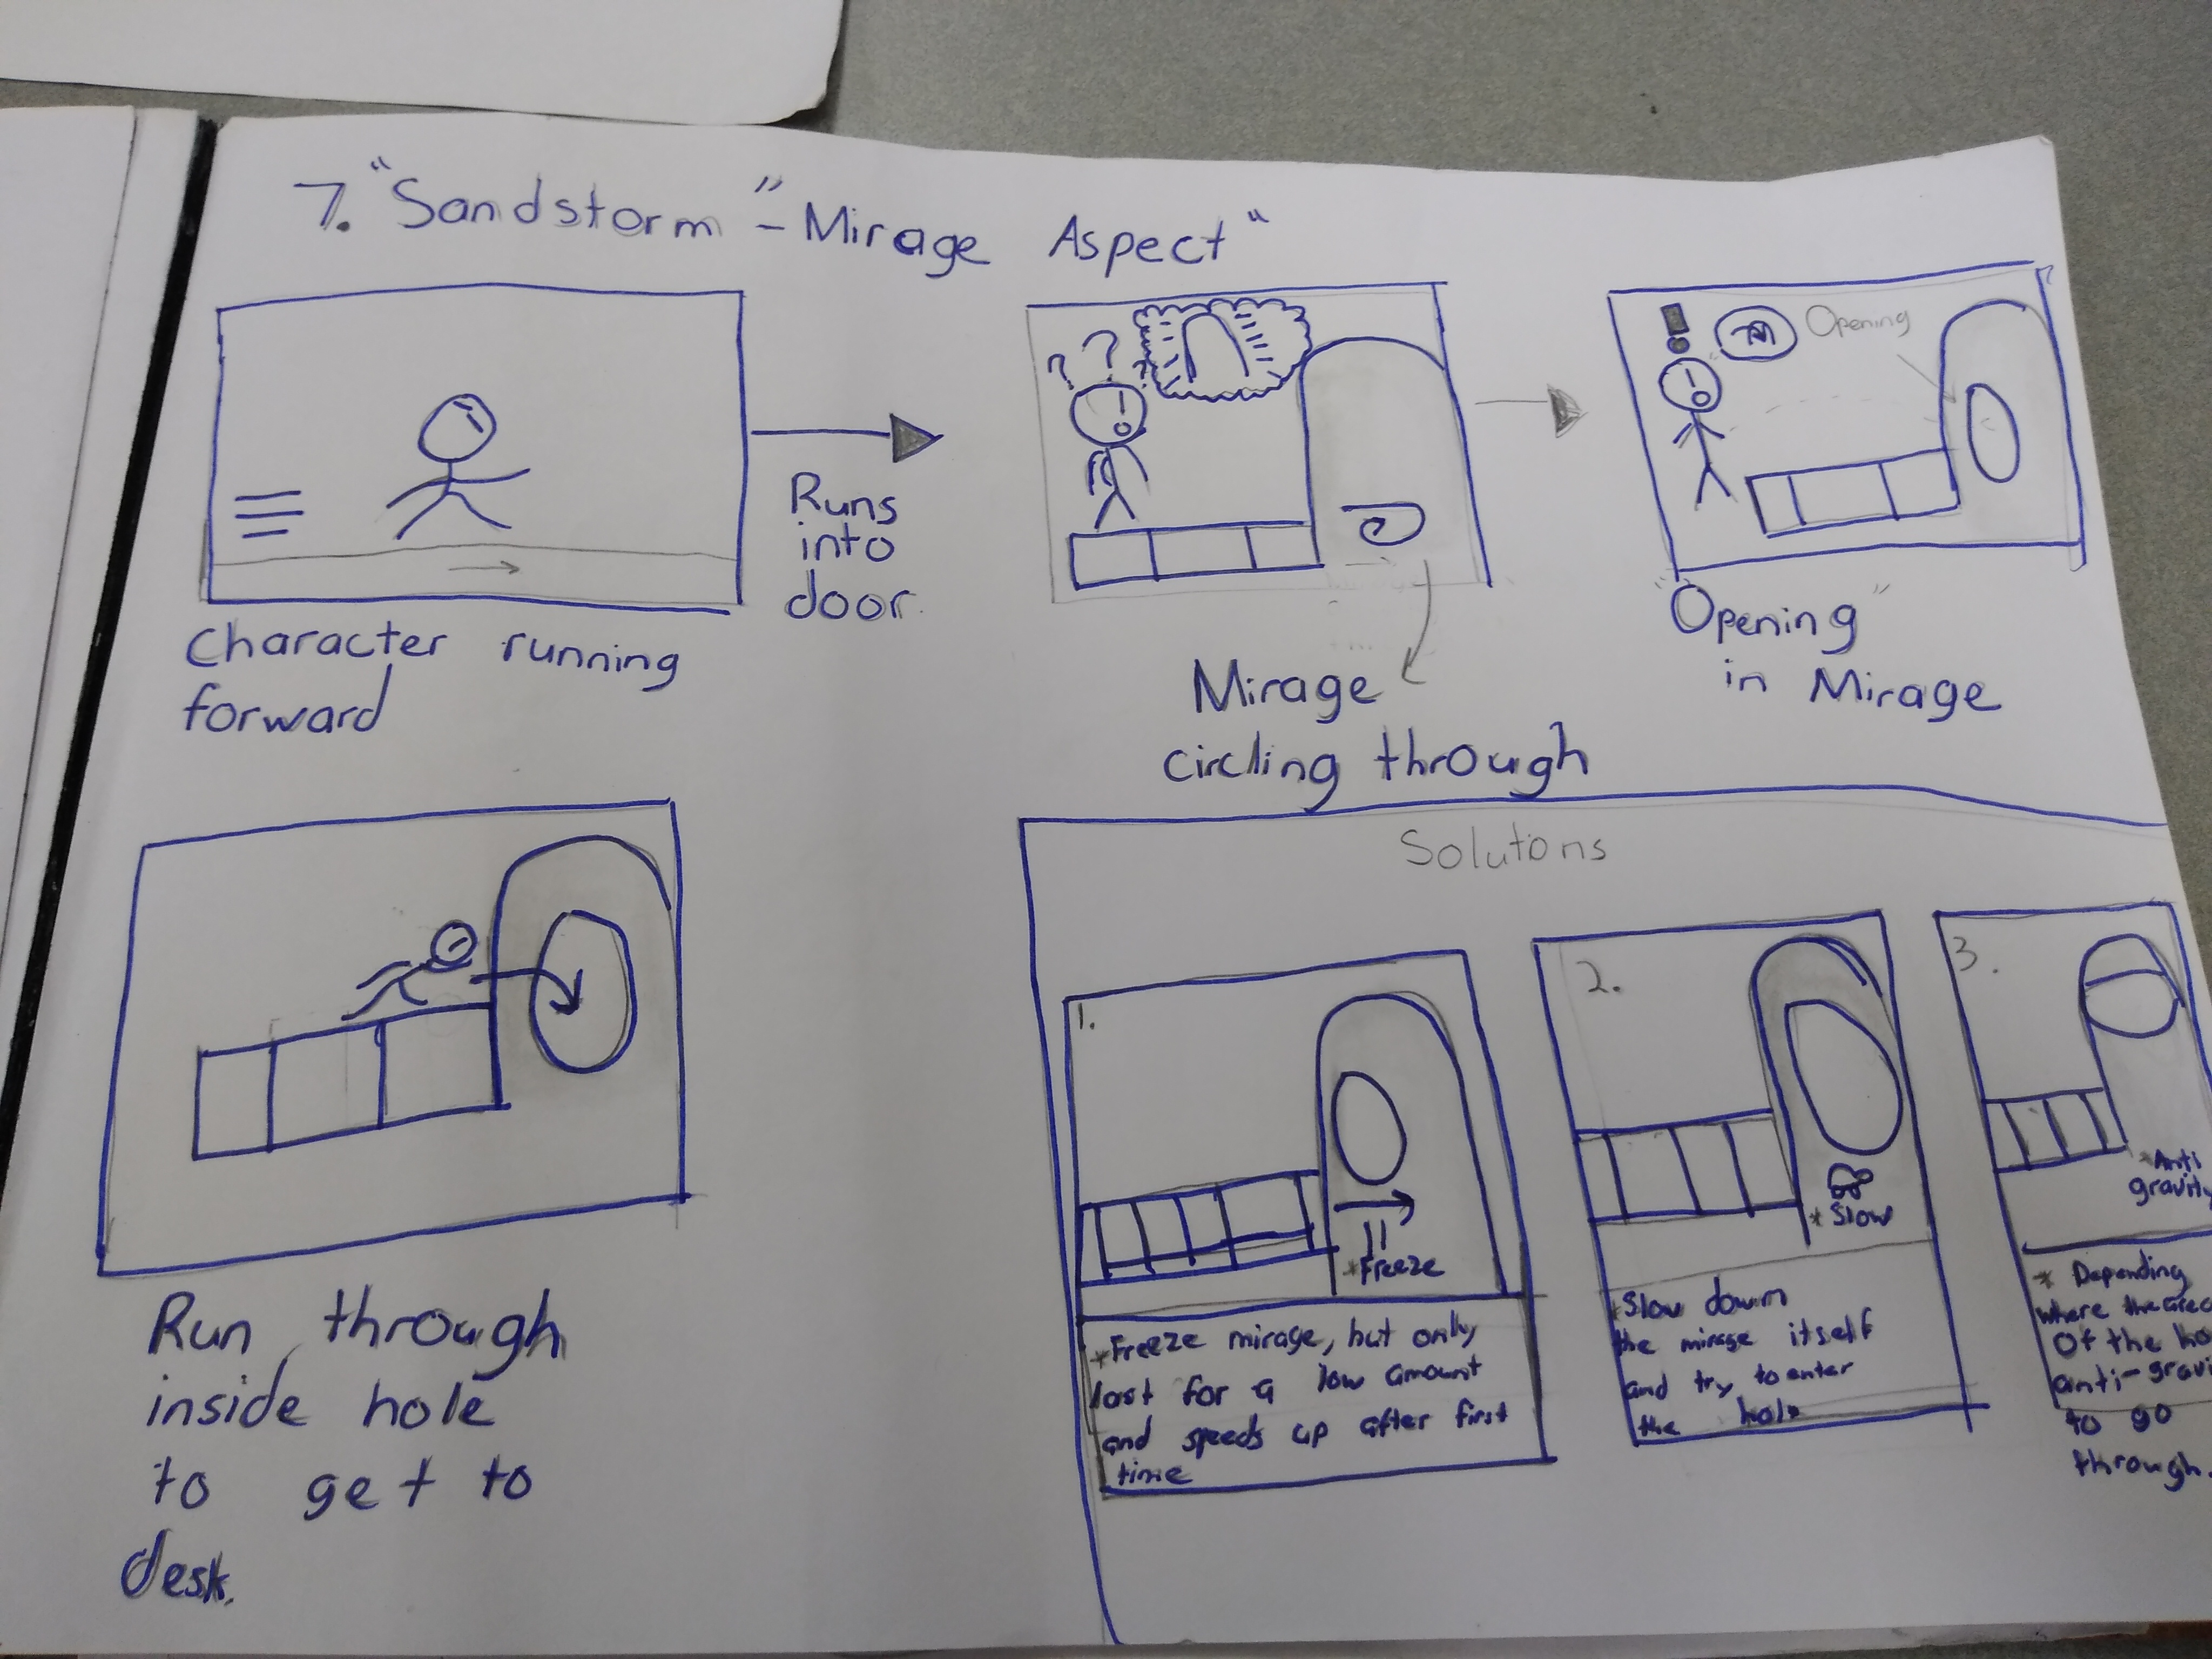 7. "Sandstorm" - Mirage Aspect"
Runs
into
door.
Character running
forward
? ? ?
Mirage
circling through
! Opening
"Opening"
in Mirage
Run through
inside hole
to get to
desk.
Solutions
1.
*Freeze
*Freeze mirage, but only
last for a low amount
and speeds up after first
time
2.
*Slow
*Slow down
the mirage itself
and try to enter
the hole
3.
*Anti
gravity
* Depending
where the area
Of the ho
anti-gravi
to go
through.